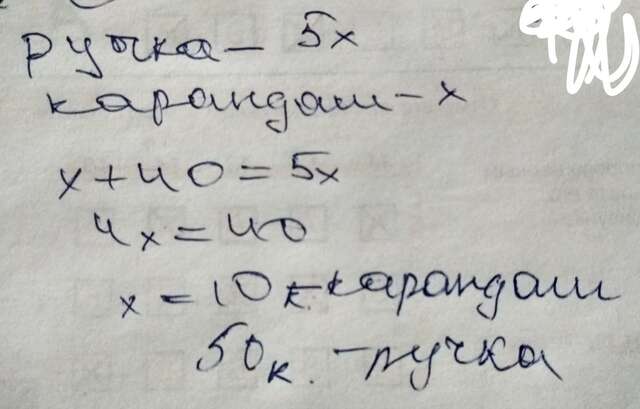 ручка – 5х
карандаш – х
х+40=5х
4х=40
х=10к-карандаш
50к. -ручка